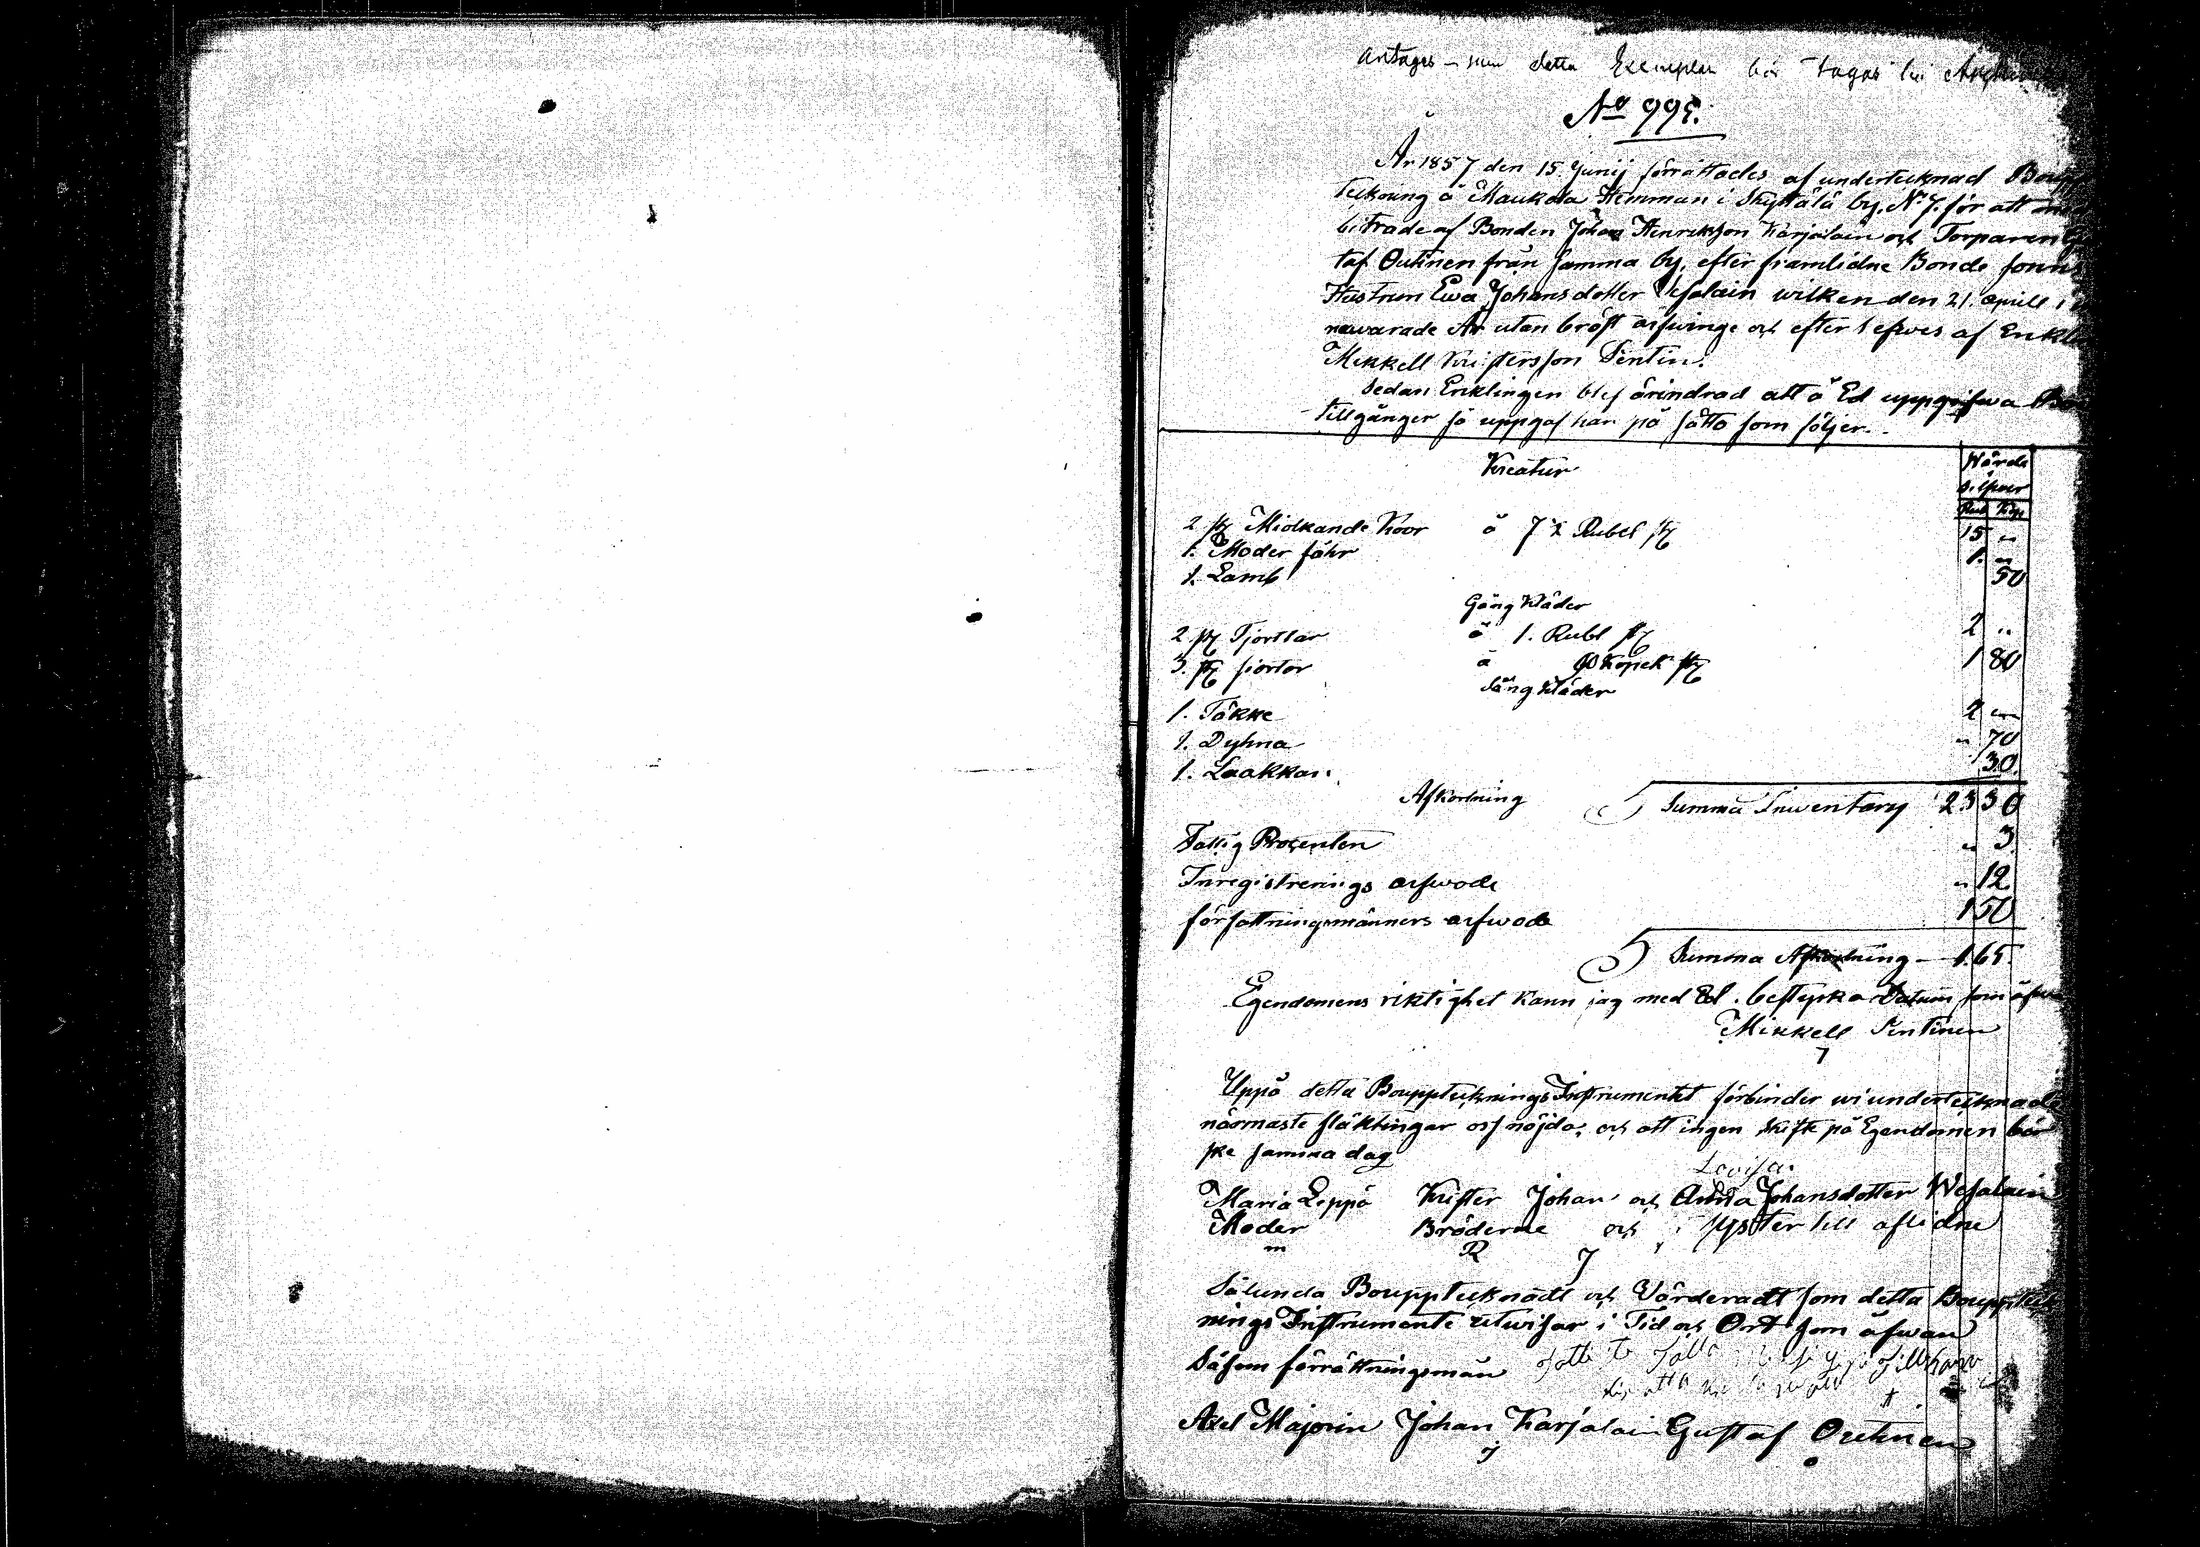 detta Exemplar bör tagas
No 995.
År 1857 den 15. Junij förrättades af undertecknad
teckning å Maukola Hemman i Skyttälä by. No 7. för att
biträde af Bonden Johan Henriksson Karjalain och Torparen
taf Outinen från samma by, efter framlidne Bonde
Hustrun Ewa Johansdotter Wesalain wilken den 21. april i
newarade År utan bröst arfwinge och efter lefwes af
Mikkell Kristersson Sintin.
Sedan Enklingen blef årindrad att å Ed uppgifwa
tillgånger så uppgaf han på sätto som följer.
Kreatur
Wärde
Silfwer
Rub Kop
2 st Miolkande Koor å 7 ½ Rubel st 15 "
1. Moder fåhr 1. "
1. Lamb 50
Gång Kläder
2 st Tjortlar å 1. Rubl st 2 "
3. st siortor å 60 Kopek st 1 80
Säng Kläder
1. Täkke 2 "
1. Dyhna " 70
1. Laakkan 30.
Afkortning Summa Inwentary 23 30
Fattig Procenten " 3.
Inregistrerings arfwode " 12
författningsmänners arfwode 1 50
Summa Afkortning 1.65.
Egendomens riktighet kann jag med Ed. bestyrka Datum som
Mikkell Sintinen
Uppå detta BouppteckningsInstrumentet förbinder wi undertecknade
närmaste släktingar oss nöjda, och att ingen skifte på Egendomen
ske samma dag
Lovisa
Maria Leppä Krister Johan och Anna Johansdotter Wesalain
Moder Bröderne och syster till aflidne
m R J
Sålunda Bouppteknadt och Värderadt som detta
nings Instrumente utwisar i Tid och Ort som äfwan
Såsom förrättningsmän
Axel Majorin Johan Karjalain Gustaf Outinen